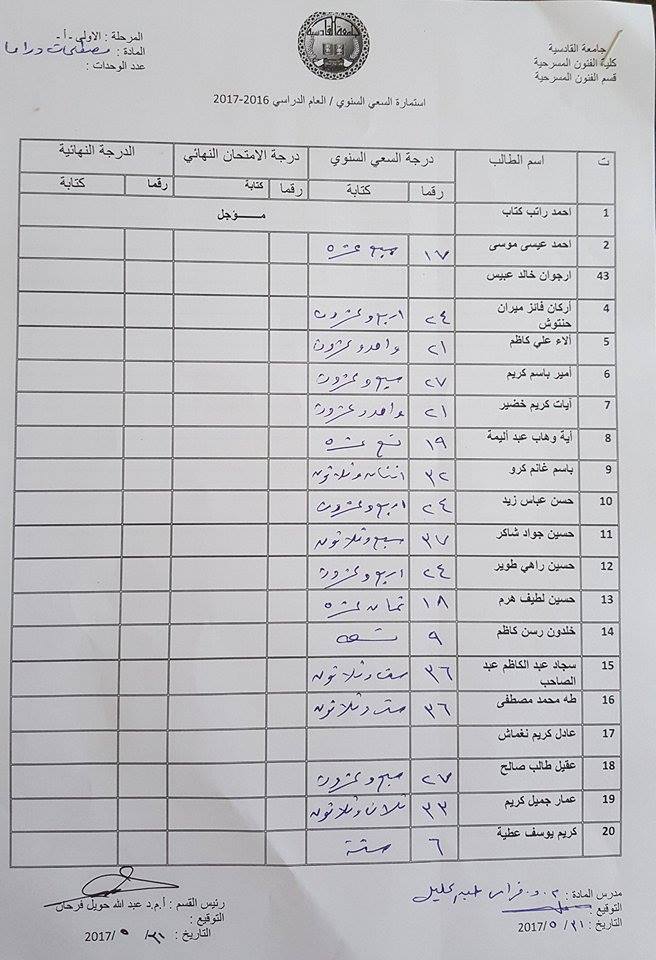 جامعة القادسية
كلية الفنون المسرحية
قسم الفنون المسرحية
جامعة القادسية
المرحلة : الاولى -أ-
المادة : مصطلحات دراما
عدد الوحدات :
استمارة السعي السنوي / العام الدراسي 2016-2017
ت اسم الطالب درجة السعي السنوي درجة الامتحان النهائي الدرجة النهائية
رقما كتابة رقما كتابة رقما كتابة
1 احمد راتب كتاب مـــــؤجل
2 احمد عيسى موسى ١٧ سبع عشره
43 ارجوان خالد عبيس
4 أركان فائز ميران حنتوش ٢٤ اربع وعشرون
5 ألاء علي كاظم ٢١ واحد وعشرون
6 أمير باسم كريم ٢٧ سبع وعشرون
7 آيات كريم خضير ٢١ واحد وعشرون
8 أية وهاب عبد أليمة ١٩ تسع عشره
9 باسم غانم كرو ٣٢ اثنان وثلاثون
10 حسن عباس زيد ٢٤ اربع وعشرون
11 حسين جواد شاكر ٣٧ سبع وثلاثون
12 حسين راهي طوير ٢٤ اربع وعشرون
13 حسين لطيف هرم ١٨ ثمان عشره
14 خلدون رسن كاظم ٩ تسعه
15 سجاد عبد الكاظم عبد الصاحب ٣٦ ست وثلاثون
16 طه محمد مصطفى ٣٦ ست وثلاثون
17 عادل كريم نغماش
18 عقيل طالب صالح ٢٧ سبع وعشرون
19 عمار جميل كريم ٣٣ ثلاث وثلاثون
20 كريم يوسف عطية ٦ ستة
مدرس المادة :
التوقيع :
التاريخ : ٣١/ ٥ /2017
رئيس القسم : أ.م.د عبد الله حويل فرحان
التوقيع :
التاريخ : ٣١/ ٥ /2017